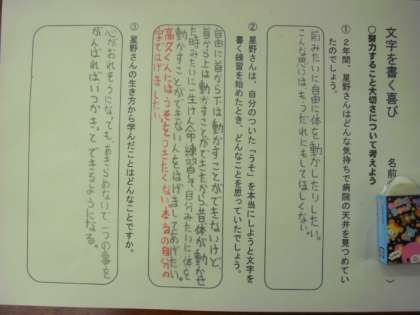 文字を書く喜び
名前（　　　　　）
○努力すること大切さについて考えよう
① 2年間、星野さんはどんな気持ちで病院の天井を見つめてい
たのでしょう。
前みたいに自由に体を動かしたりしたい。
こんな思いはもうだれにもしてほしくない。
② 星野さんは、自分のついた「うそ」を本当にしようと文字を
書く練習を始めたとき、どんなことを思っていたでしょう。
自由に首から下は動かすことができないけど、
首から上は動かすことができたから、昔体が動かせ
た時みたいに一生けん命練習して自分みたいに体を
動かすことができない人をはげましてあげたい。
高久くんにはうそをつきたくない。本当の自分の
字ではげましたい。
③ 星野さんの生き方から学んだことはどんなことですか。
心がおれそうになっても、あきらめないで一つの事を
がんばればいつかきっとできるようになる。